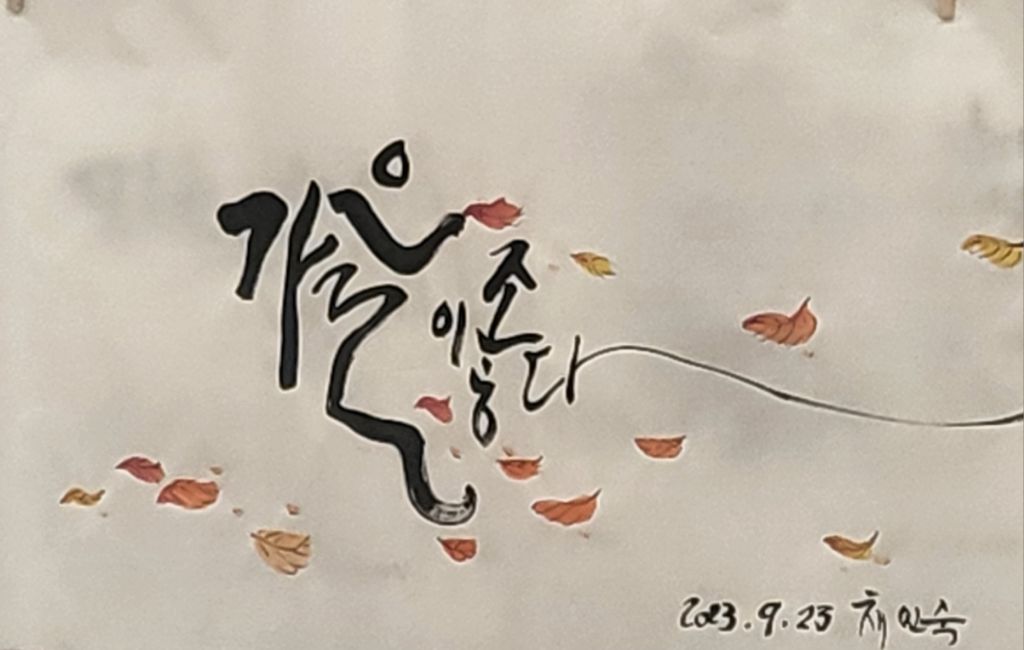 가을이 좋다
2023.9.23 채인숙